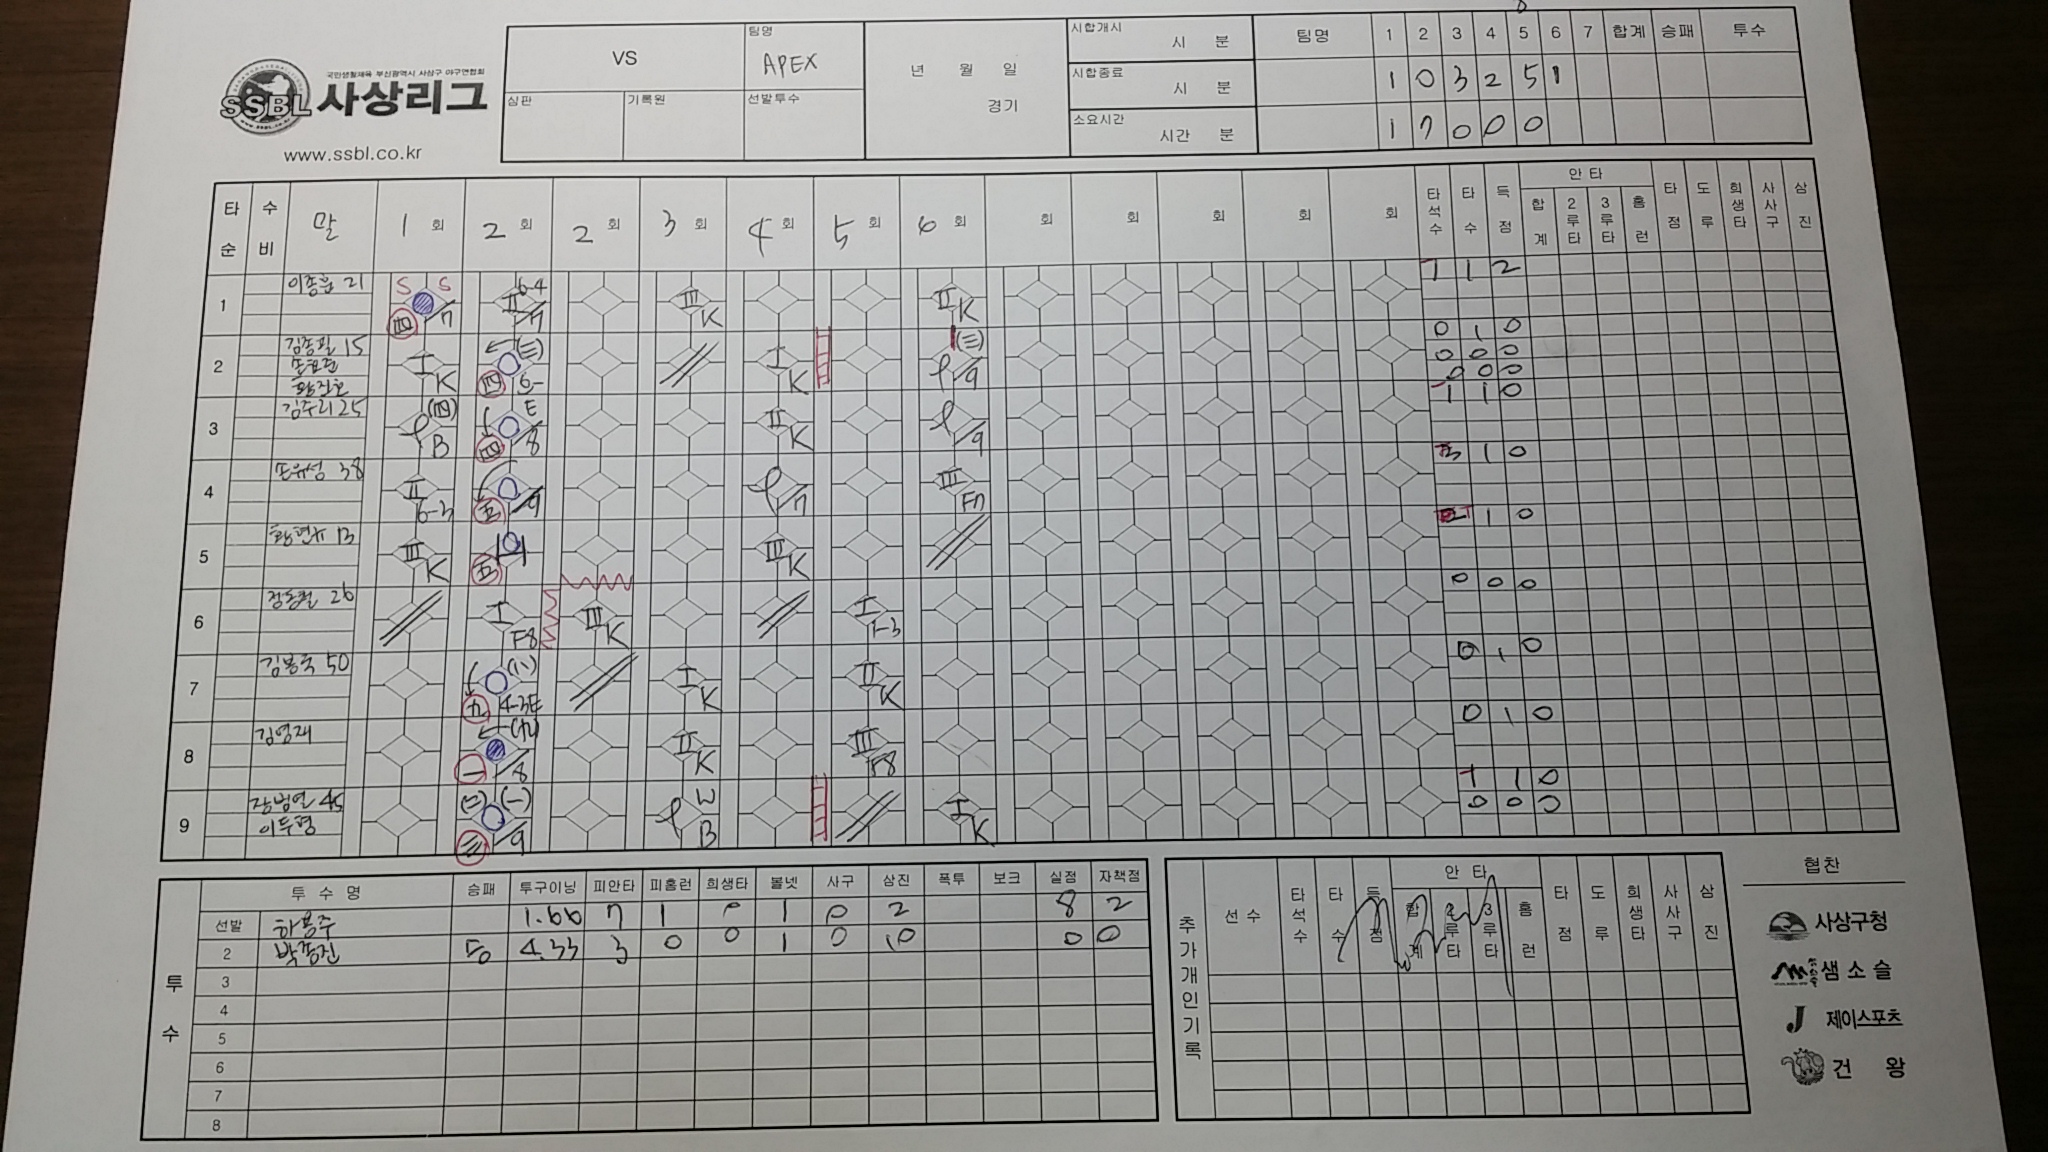 국민생활체육 부산광역시 사상구 야구연합회
SSBL 사상리그
www.ssbl.co.kr
VS
팀명
APEX
심판
기록원
선발투수
년 월 일
경기
시합개시
시 분
시합종료
시 분
소요시간
시간 분
팀명 1 2 3 4 5 6 7 합계 승패 투수
1 0 3 2 5 1
1 7 0 0 0
타순 수비 말 1회 2회 2회 3회 4회 5회 6회 회 회 회 회 회 타석수 타수 득점 안타 합계 2루타 3루타 홈런 타점 도루 희생타 사사구 삼진
1 21 S S 四 /7 II 6-4 /7 III K II K 1 2
2 15 I K (三) 四 6- I K (三) /9 0 1 0
0 0 0
0 0 0
3 김주리 25 (四) B E 四 /8 II K /9 1 1 0
4 손유성 38 II 6-3 五 /9 /7 III F7 1 0
5 13 III K 五 H III K 1 0
6 26 I F8 III K I 1-3 0 0 0
7 50 4-3E I K II K 0 1 0
8 김영재 一 /8 II K III F8 0 1 0
9 45 (二) (一) 三 /9 W B I K 1 0
0 0 0
투수 투수명 승패 투구이닝 피안타 피홈런 희생타 볼넷 사구 삼진 폭투 보크 실점 자책점
선발 하용주 1.66 7 1 0 1 0 2 8 2
2 박종진 승 4.33 3 0 0 1 0 10 0 0
3
4
5
6
7
8
추가개인기록 선수 타석수 타수 득점 안타 합계 2루타 3루타 홈런 타점 도루 희생타 사사구 삼진
협찬
사상구청
샘소슬
J 제이스포츠
건왕